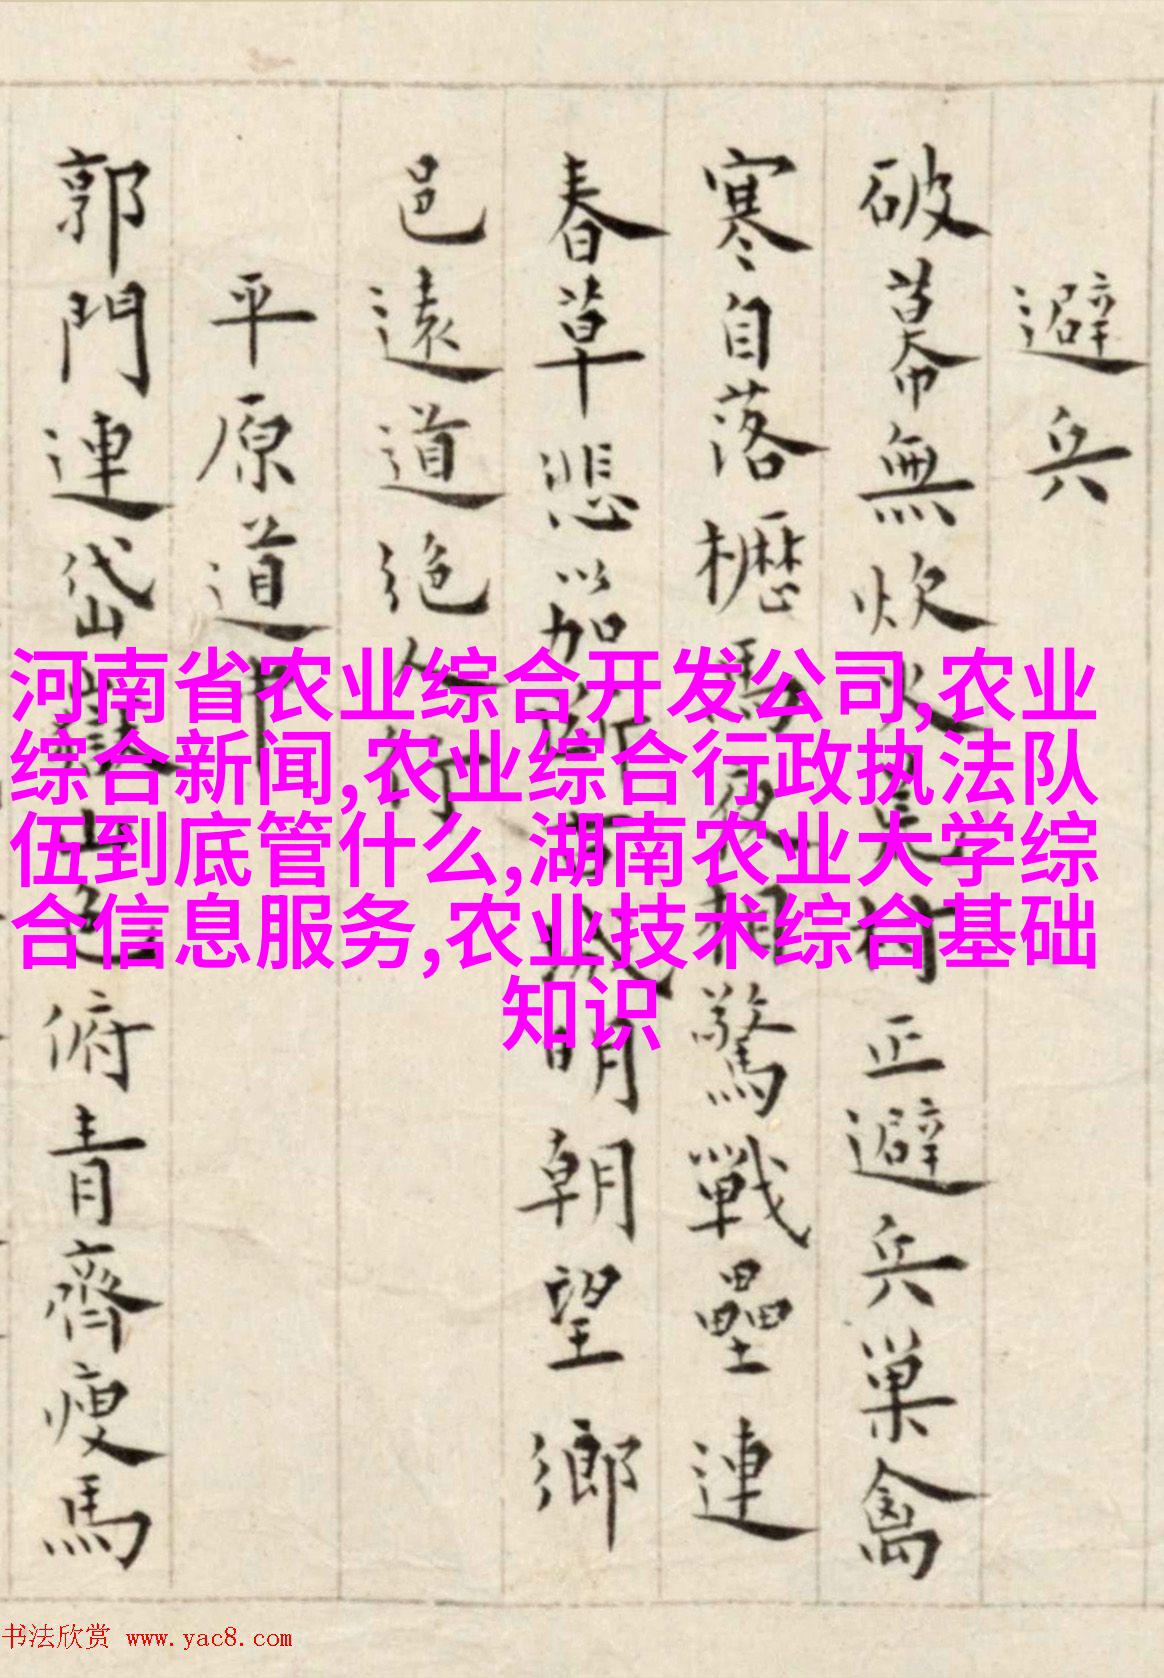 避兵
破幕無炊火村正避兵巢禽
寒自落櫪馬夜相驚戰壘連
春草悲笳斷城明朝望鄉
邑遠道絕人行
平原道中
郭門連岱嶽山色俯青齊瘦馬
河南省农业综合开发公司,农业
综合新闻,农业综合行政执法队
伍到底管什么,湖南农业大学综
合信息服务,农业技术综合基础
知识
书法欣赏 www.yac8.com